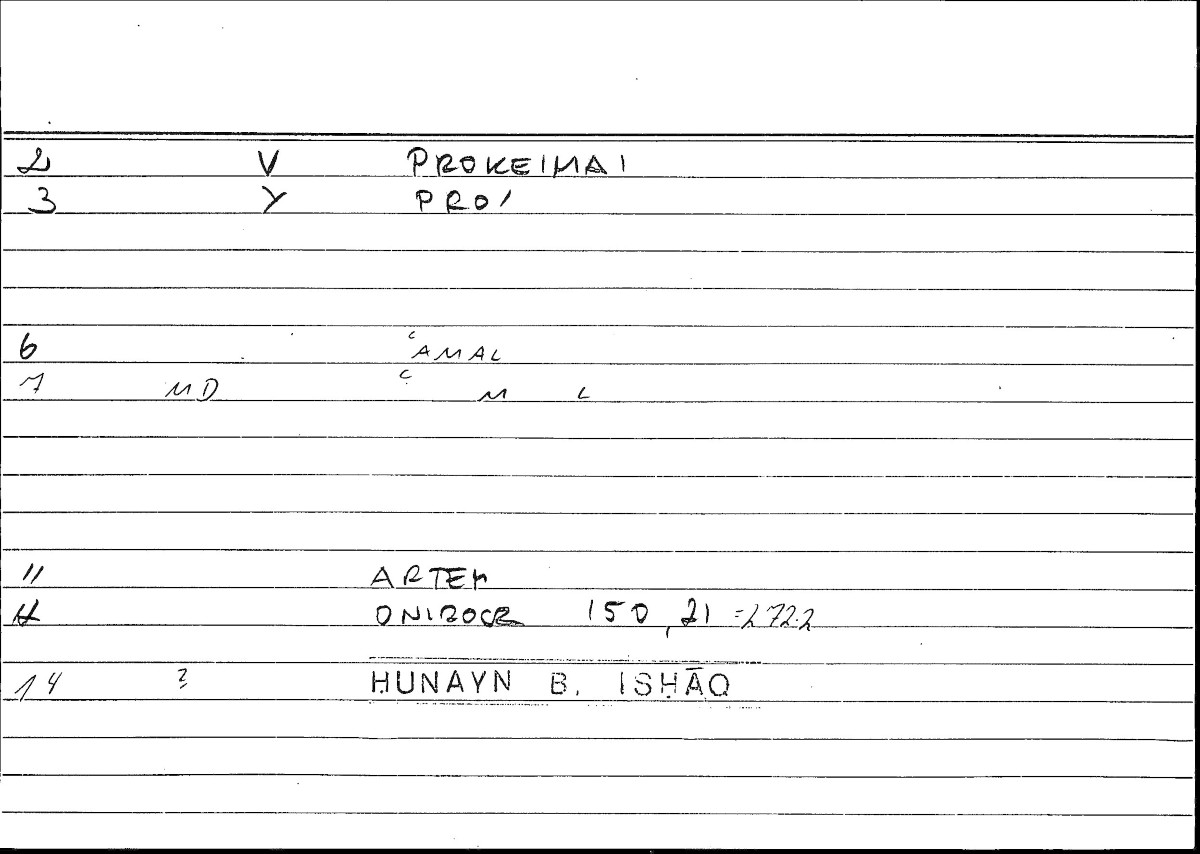 2 V PROKEIMAI
3 Y PRO/
6 ʿAMAL
7 MD ʿ M L
11 ARTEM
12 ONIROCR 150,21 =272.2
14 ? ḤUNAYN B. ISḤĀQ